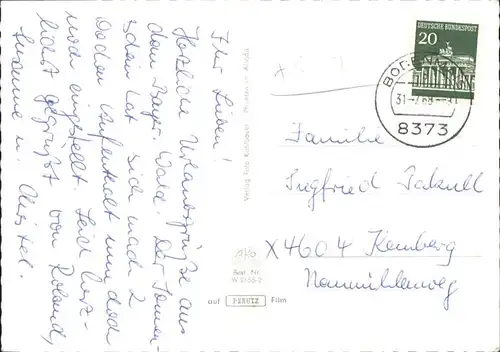 Ihr Lieben!
Herzliche Urlaubsgrüße aus
dem Bayer. Wald. Der Sonnen-
schein hat sich nach 2
Wochen Aufenthalt nun doch
noch eingestellt. Seid herz-
lichst gegrüßt von Roland,
Susanne u. Christel.
Verlag Foto Kollinger
Best. Nr.
W 2166-2
auf PERUTZ Film
DEUTSCHE BUNDESPOST
20
31.-7.68
8373
Familie
Siegfried
X 4604 Kemberg
Neumühlenweg